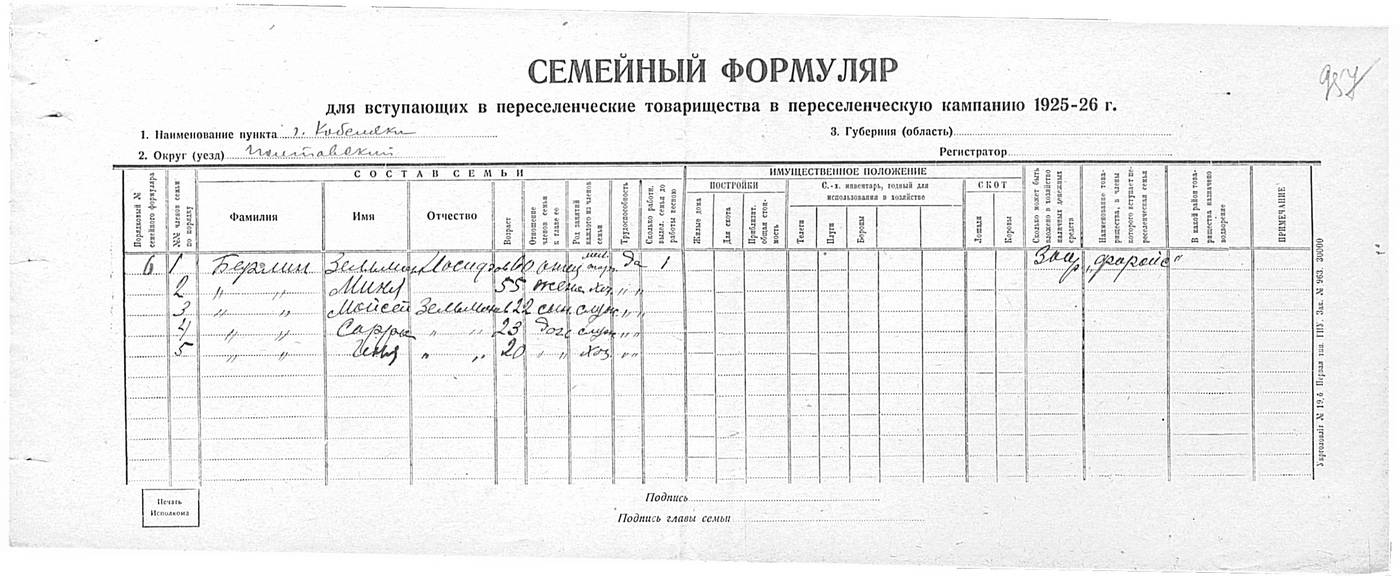 СЕМЕЙНЫЙ ФОРМУЛЯР
957
для вступающих в переселенческие товарищества в переселенческую кампанию 1925-26 г.
1. Наименование пункта г. Кобеляки
3. Губерния (область)
2. Округ (уезд) Полтавский
Регистратор
СОСТАВ СЕМЬИ
ИМУЩЕСТВЕННОЕ ПОЛОЖЕНИЕ
Порядковый № семейного формуляра
№№ членов семьи по порядку
Фамилия
Имя
Отчество
Возраст
Отношение членов семьи к главе ее
Род занятий каждого из членов семьи
Трудоспособность
Сколько работн. выдел. семья до работы весною
ПОСТРОЙКИ
Жилые дома
Для скота
Приблизит. общая стоимость
С.-х. инвентарь, годный для использования в хозяйстве
Телеги
Плуги
Бороны
СКОТ
Лошади
Коровы
Сколько может быть вложено в хозяйство наличных денежных средств
Наименование товарищества, в члены которого вступает переселенческая семья
В какой район товарищества назначено водворение
ПРИМЕЧАНИЕ
6 1 Берлин Зельман 60 отец да 1 „Фаройс"
2 „ „ Миня 55 жена хоз. „ „
3 „ „ Мойсей Зельманов 22 сын служ „ „
4 „ „ Сарра „ „ 23 доч служ „ „
5 „ „ „ „ 20 „ „ хоз. „ „
Печать Исполкома
Подпись
Подпись главы семьи
Укрголовліт № 19.6 Первая тип. ГПУ. Зак. № 963. 30000